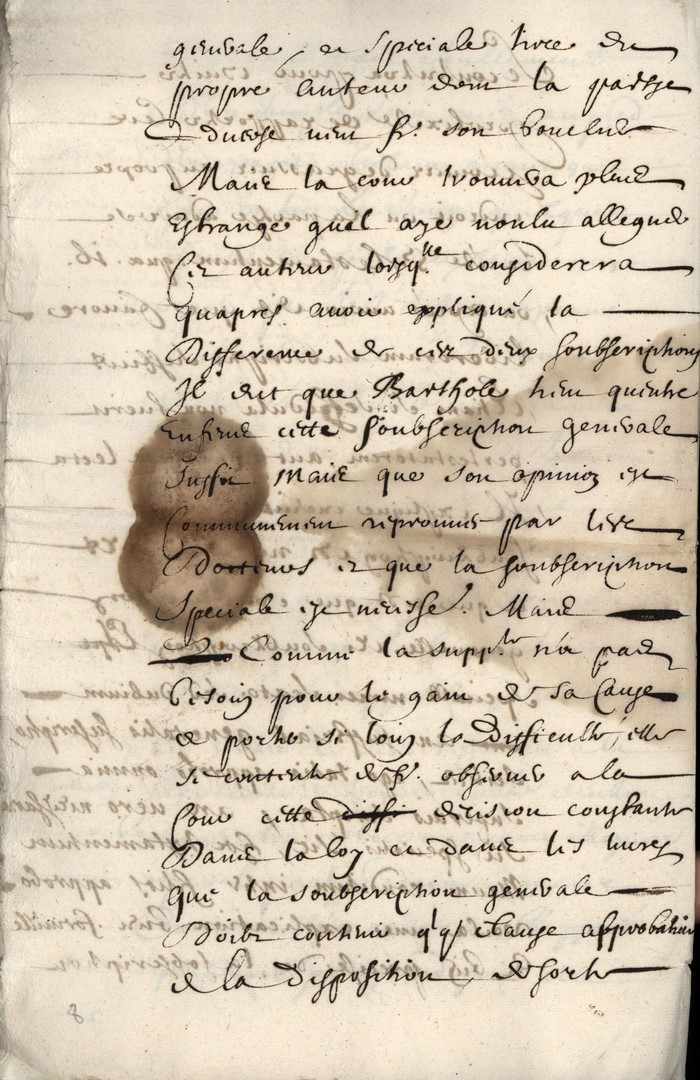 generale, et speciale tiree du
propre auteur dont la partye
adverse vient fe. son bouclier
Mais la cour trouvera plus
Estrange quil aye voulu alleguer
Cez auteur lorsq.lle considerera
quapres avoir eppliqué la
Difference de cez deux soubscriptions
Il dit que Barthole tien quentre
Enfens cette soubscription generale
Suffit Mais que son opinion est
Communement reprouvee par lez
Docteurs et que la soubscription
Speciale est necesse.e Mais
Comme la supp.te n'a pas
besoin pour le gain de sa Cause
de porter si loin la Difficulté, elle
se contente de fe. observer a la
Cour cette diffe decision constante
Dans la loy et dans les livres
que la soubscription generale
Doibt contenir q'q' clause approbative
de la Disposition, de sorte
8